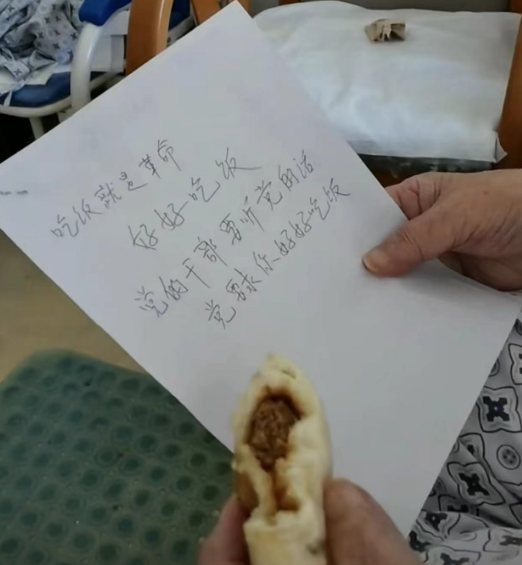 吃饭就是革命
好好吃饭
党的干部要听党的话
党要求你好好吃饭